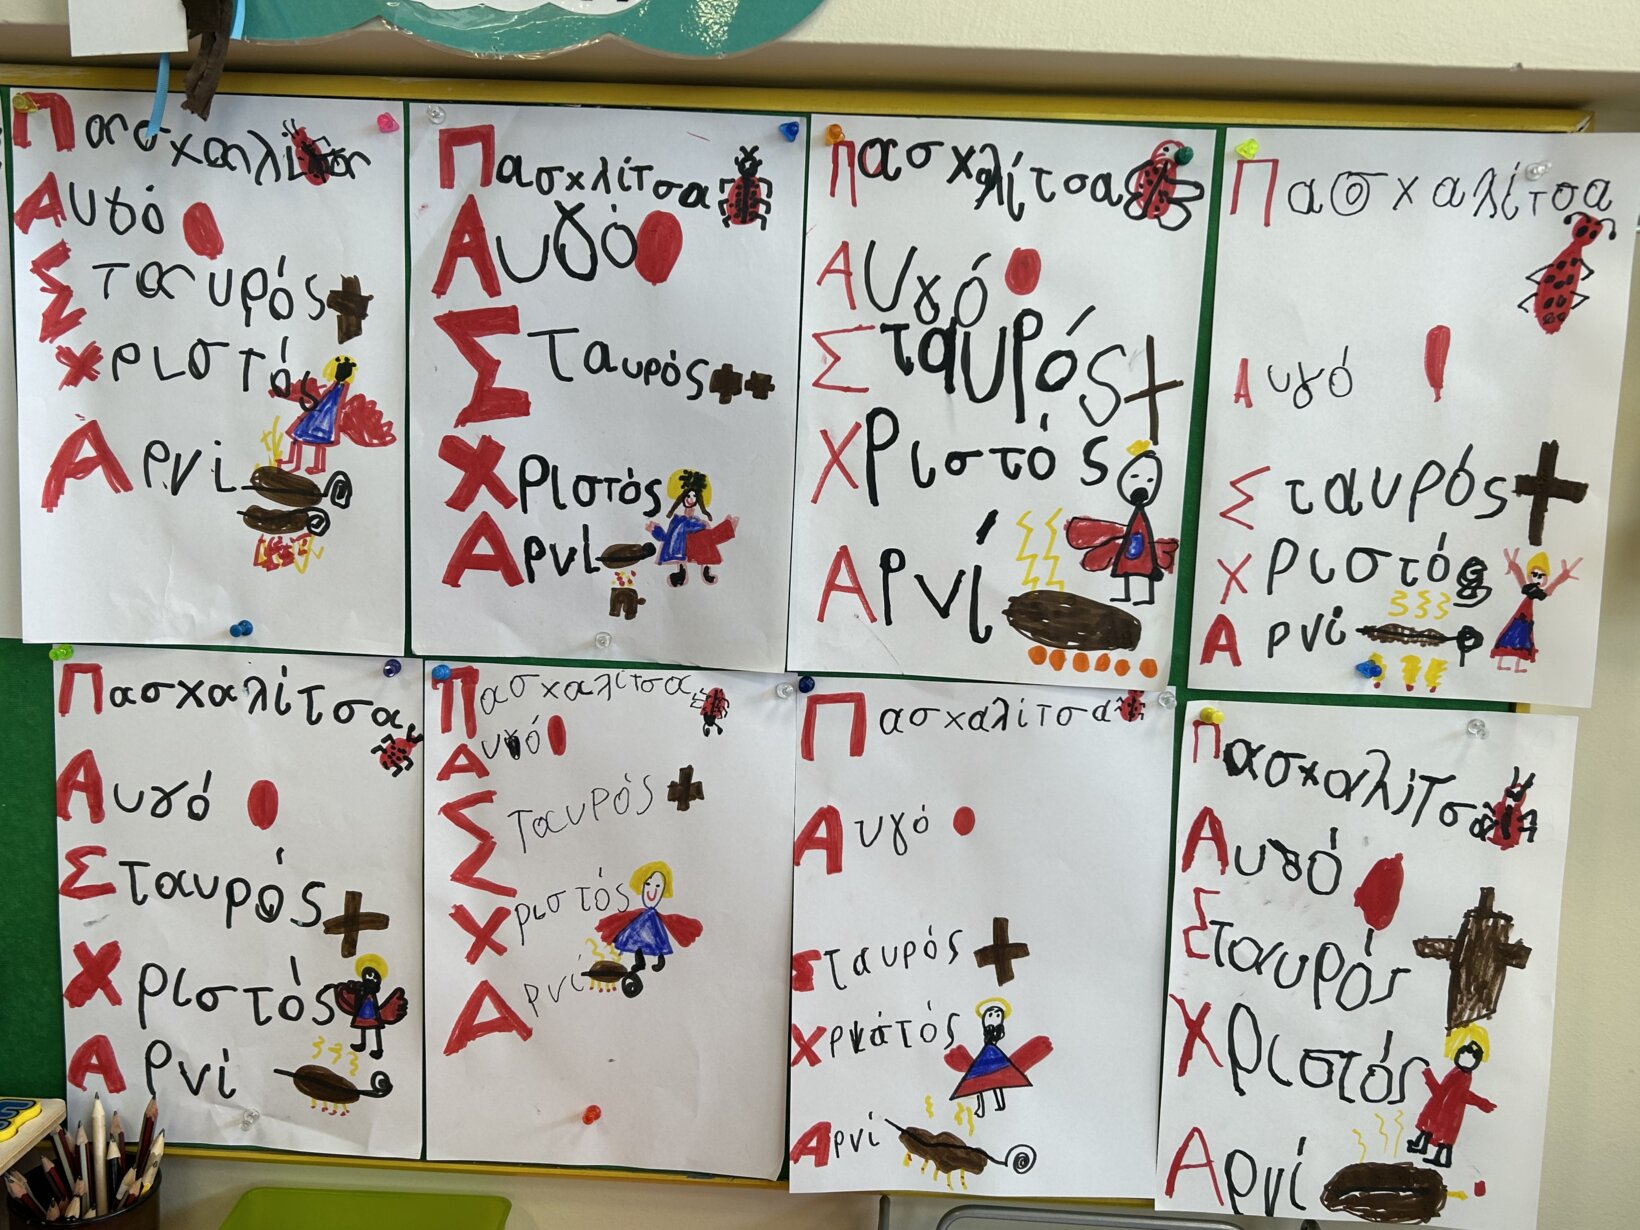 Πασχαλίτσα
Αυγό
Σταυρός
Χριστός
Αρνί
Πασχλίτσα
Αυγό
Σταυρός
Χριστός
Αρνί
Πασχαλίτσα
Αυγό
Σταυρός
Χριστός
Αρνί
Πασχαλίτσα
Αυγό
Σταυρός
Χριστός
Αρνί
Πασχαλίτσα
Αυγό
Σταυρός
Χριστός
Αρνί
Πασχαλίτσα
Αυγό
Σταυρός
Χριστός
Αρνί
Πασχαλίτσα
Αυγό
Σταυρός
Αρνί
Πασχαλίτσα
Αυγό
Σταυρός
Χριστός
Αρνί